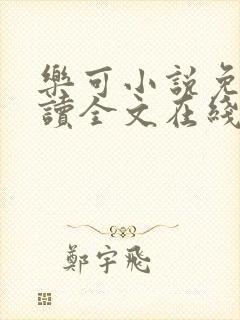 樂可小說免
讀全文在綫
鄭宇飛